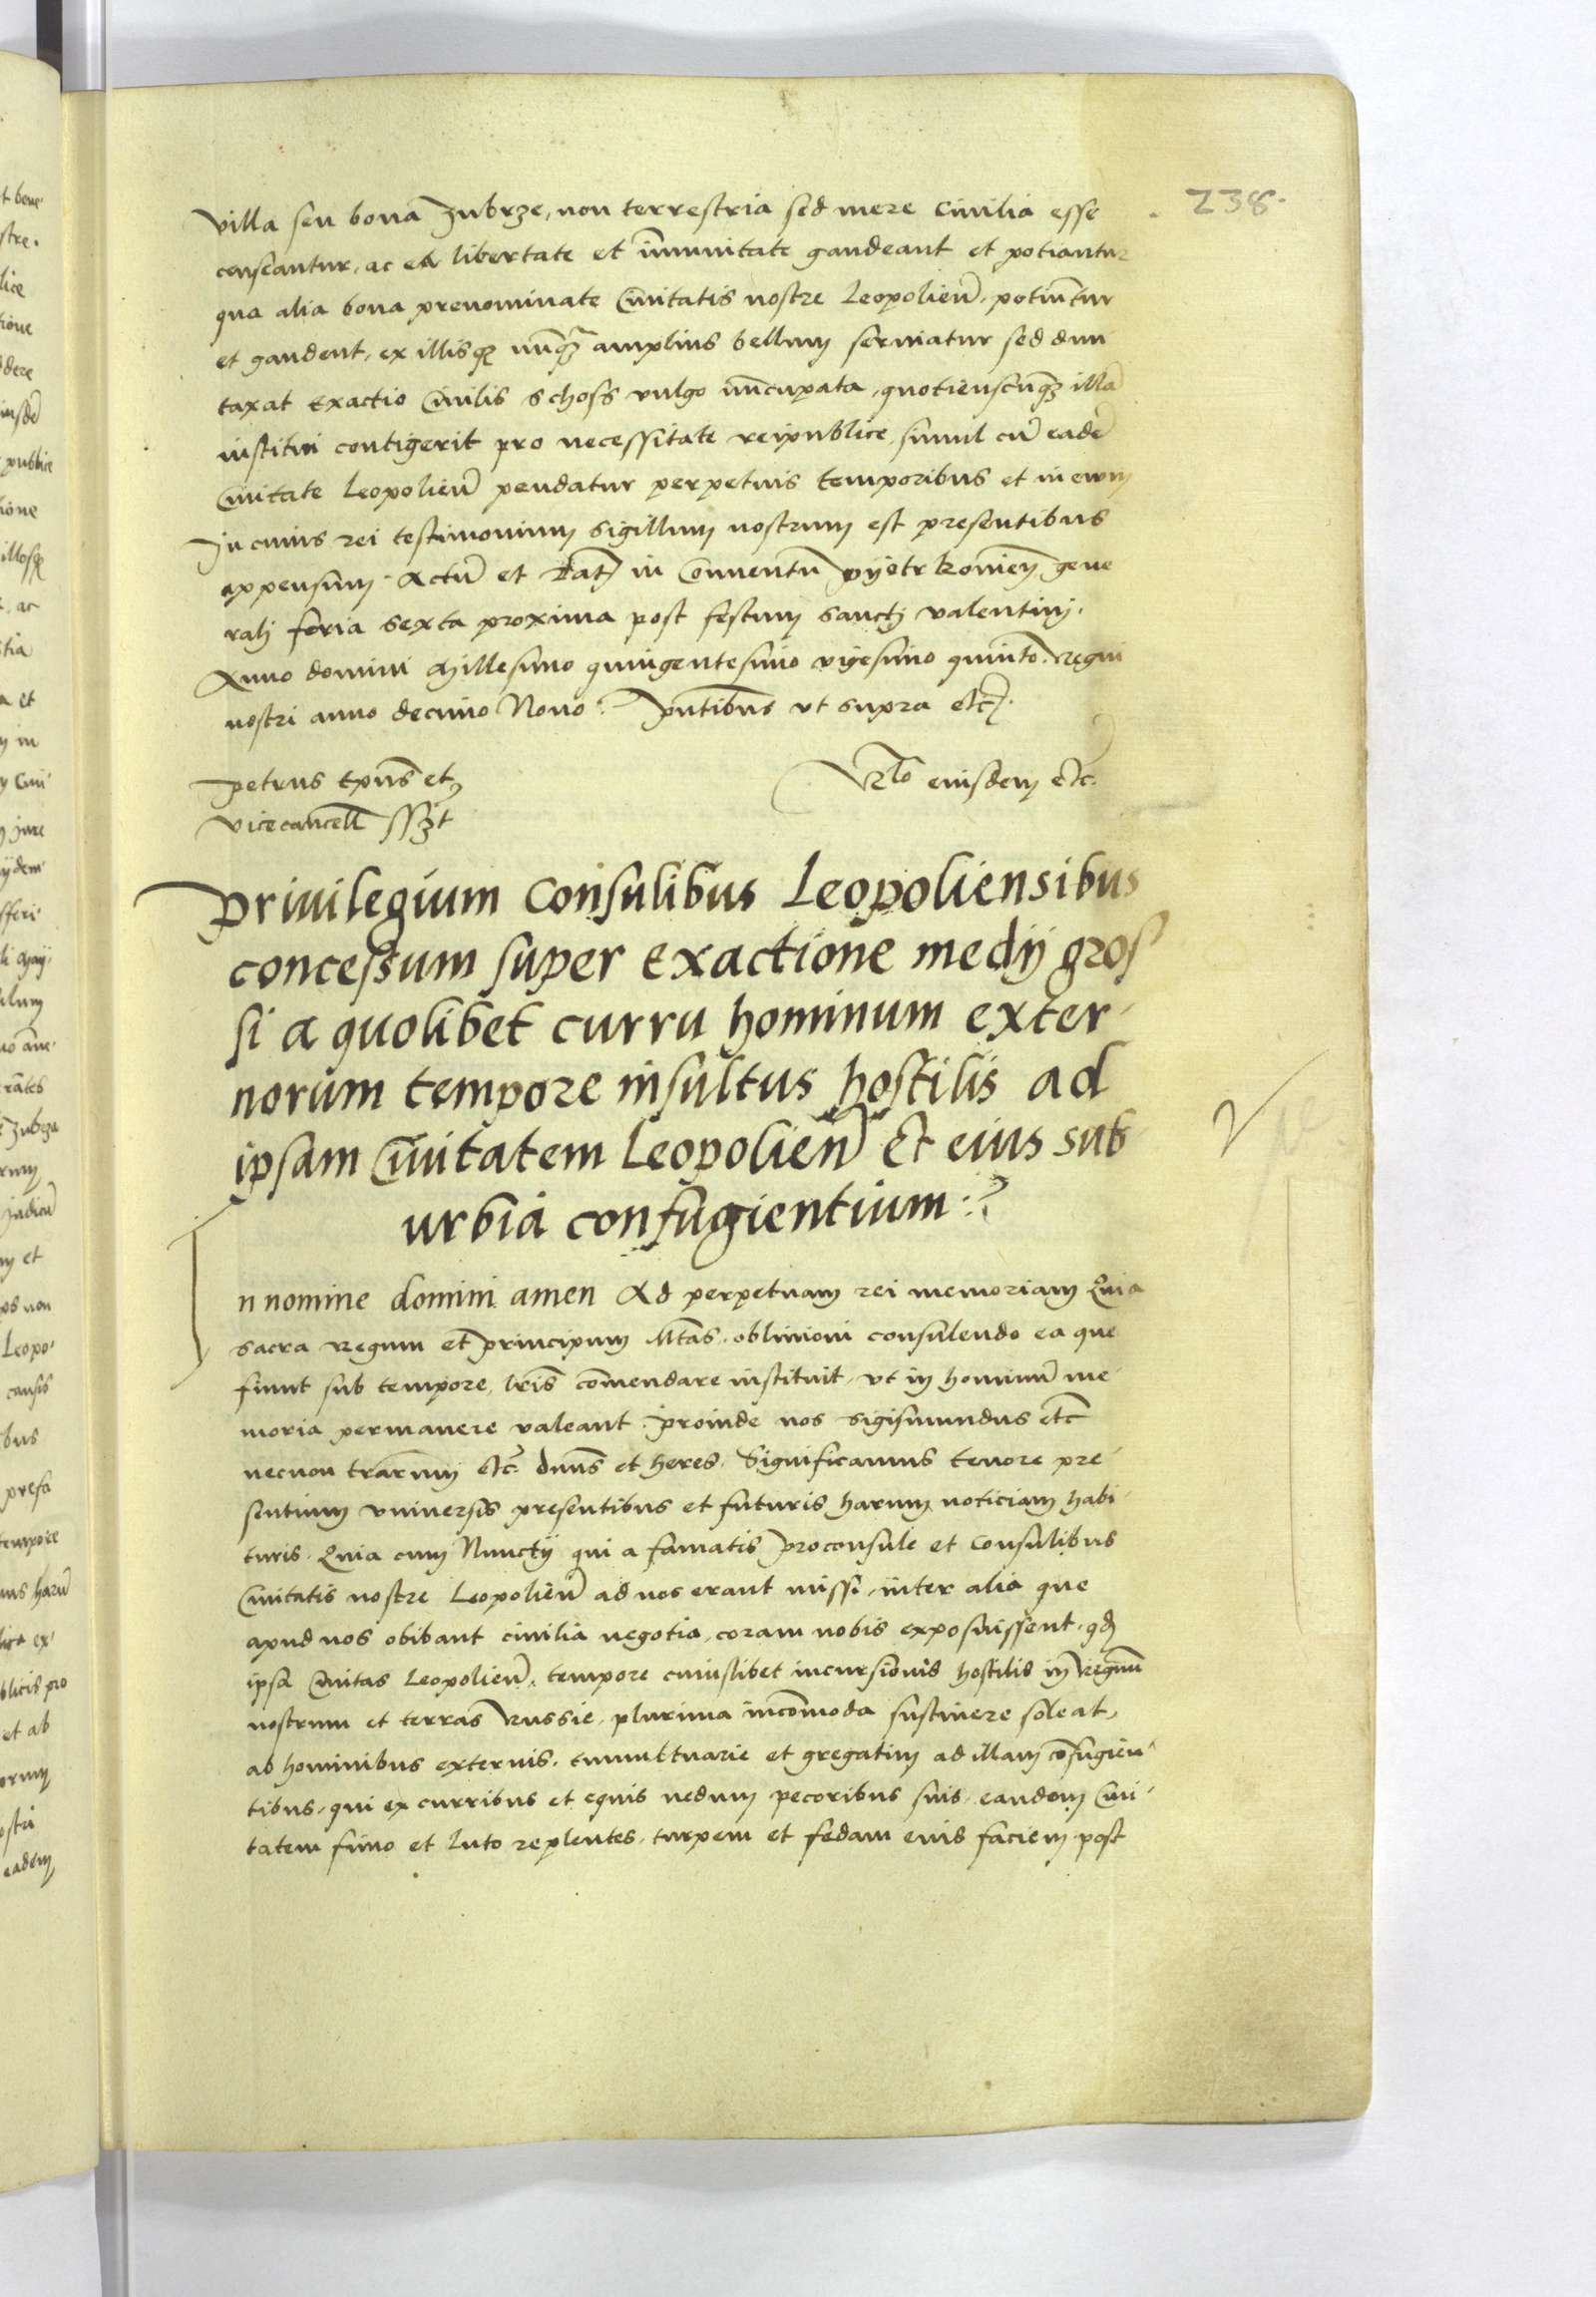 238.
villa seu bona Zubrze, non terrestria sed mere Civilia esse
censeantur, ac ea libertate et im̄unitate gaudeant et potiantur
qua alia bona prenominate Civitatis nostre Leopolien̄, potiūtur
et gaudent, ex illisq₃ nūq̄₃ amplius bellum serviatur sed dun
taxat Exactio Civilis schoss vulgo nūcupata, quotienscūq₃ illā
institui contigerit pro necessitate reipublice, simul cū eadē
Civitate Leopolien̄ pendatur perpetuis temporibus et in evum
In cuius rei testimonium Sigillum nostrum est presentibus
appensum. Actū et Dat̄ in Conventu pyotrkovien̄ gene
rali feria sexta proxima post festum sancti valentini.
Anno domini Millesimo quingentesimo vigesimo quinto. Regni
nostri anno decimo Nono. Pn̄tibus ut supra etc.
Petrus Ep̄us et
vicecancell̄ sszt
Rl̄o eiusdem etc.
Privilegium Consulibus Leopoliensibus
concessum super exactione medij gros
si a quolibet curru hominum exter-
norum tempore insultus hostilis ad
ipsam Civitatem Leopolien̄ Et eius sub
urbia confugientium
In nomine domini amen Ad perpetuam rei memoriam Quia
sacra Regum et principum Mt̄as, oblivioni consulendo ea que
fiunt sub tempore, lr̄is com̄endare instituit, ut in hominū me-
moria permanere valeant. Proinde nos Sigismundus etc̄
necnon trārum etc̄. dn̄us et heres. Significamus tenore pre-
sentium universis presentibus et futuris harum noticiam habi-
turis. Quia cum Nunctij qui a famatis Proconsule et Consulibus
Civitatis nostre Leopolien̄ ad nos erant missi, inter alia que
apud nos obibant civilia negotia, coram nobis exposuissent, qd̄
ipsa Civitas Leopolien̄, tempore cuiuslibet incursionis hostilis in Regnū
nostrum et terras Russie, plurima incōmoda sustinere soleat,
ab hominibus externis, tumultuarie et gregatim ad illam cōfugien-
tibus, qui ex curribus et equis nedum pecoribus suis, eandem Civi-
tatem fimo et luto replentes, turpem et fedam eius faciem post